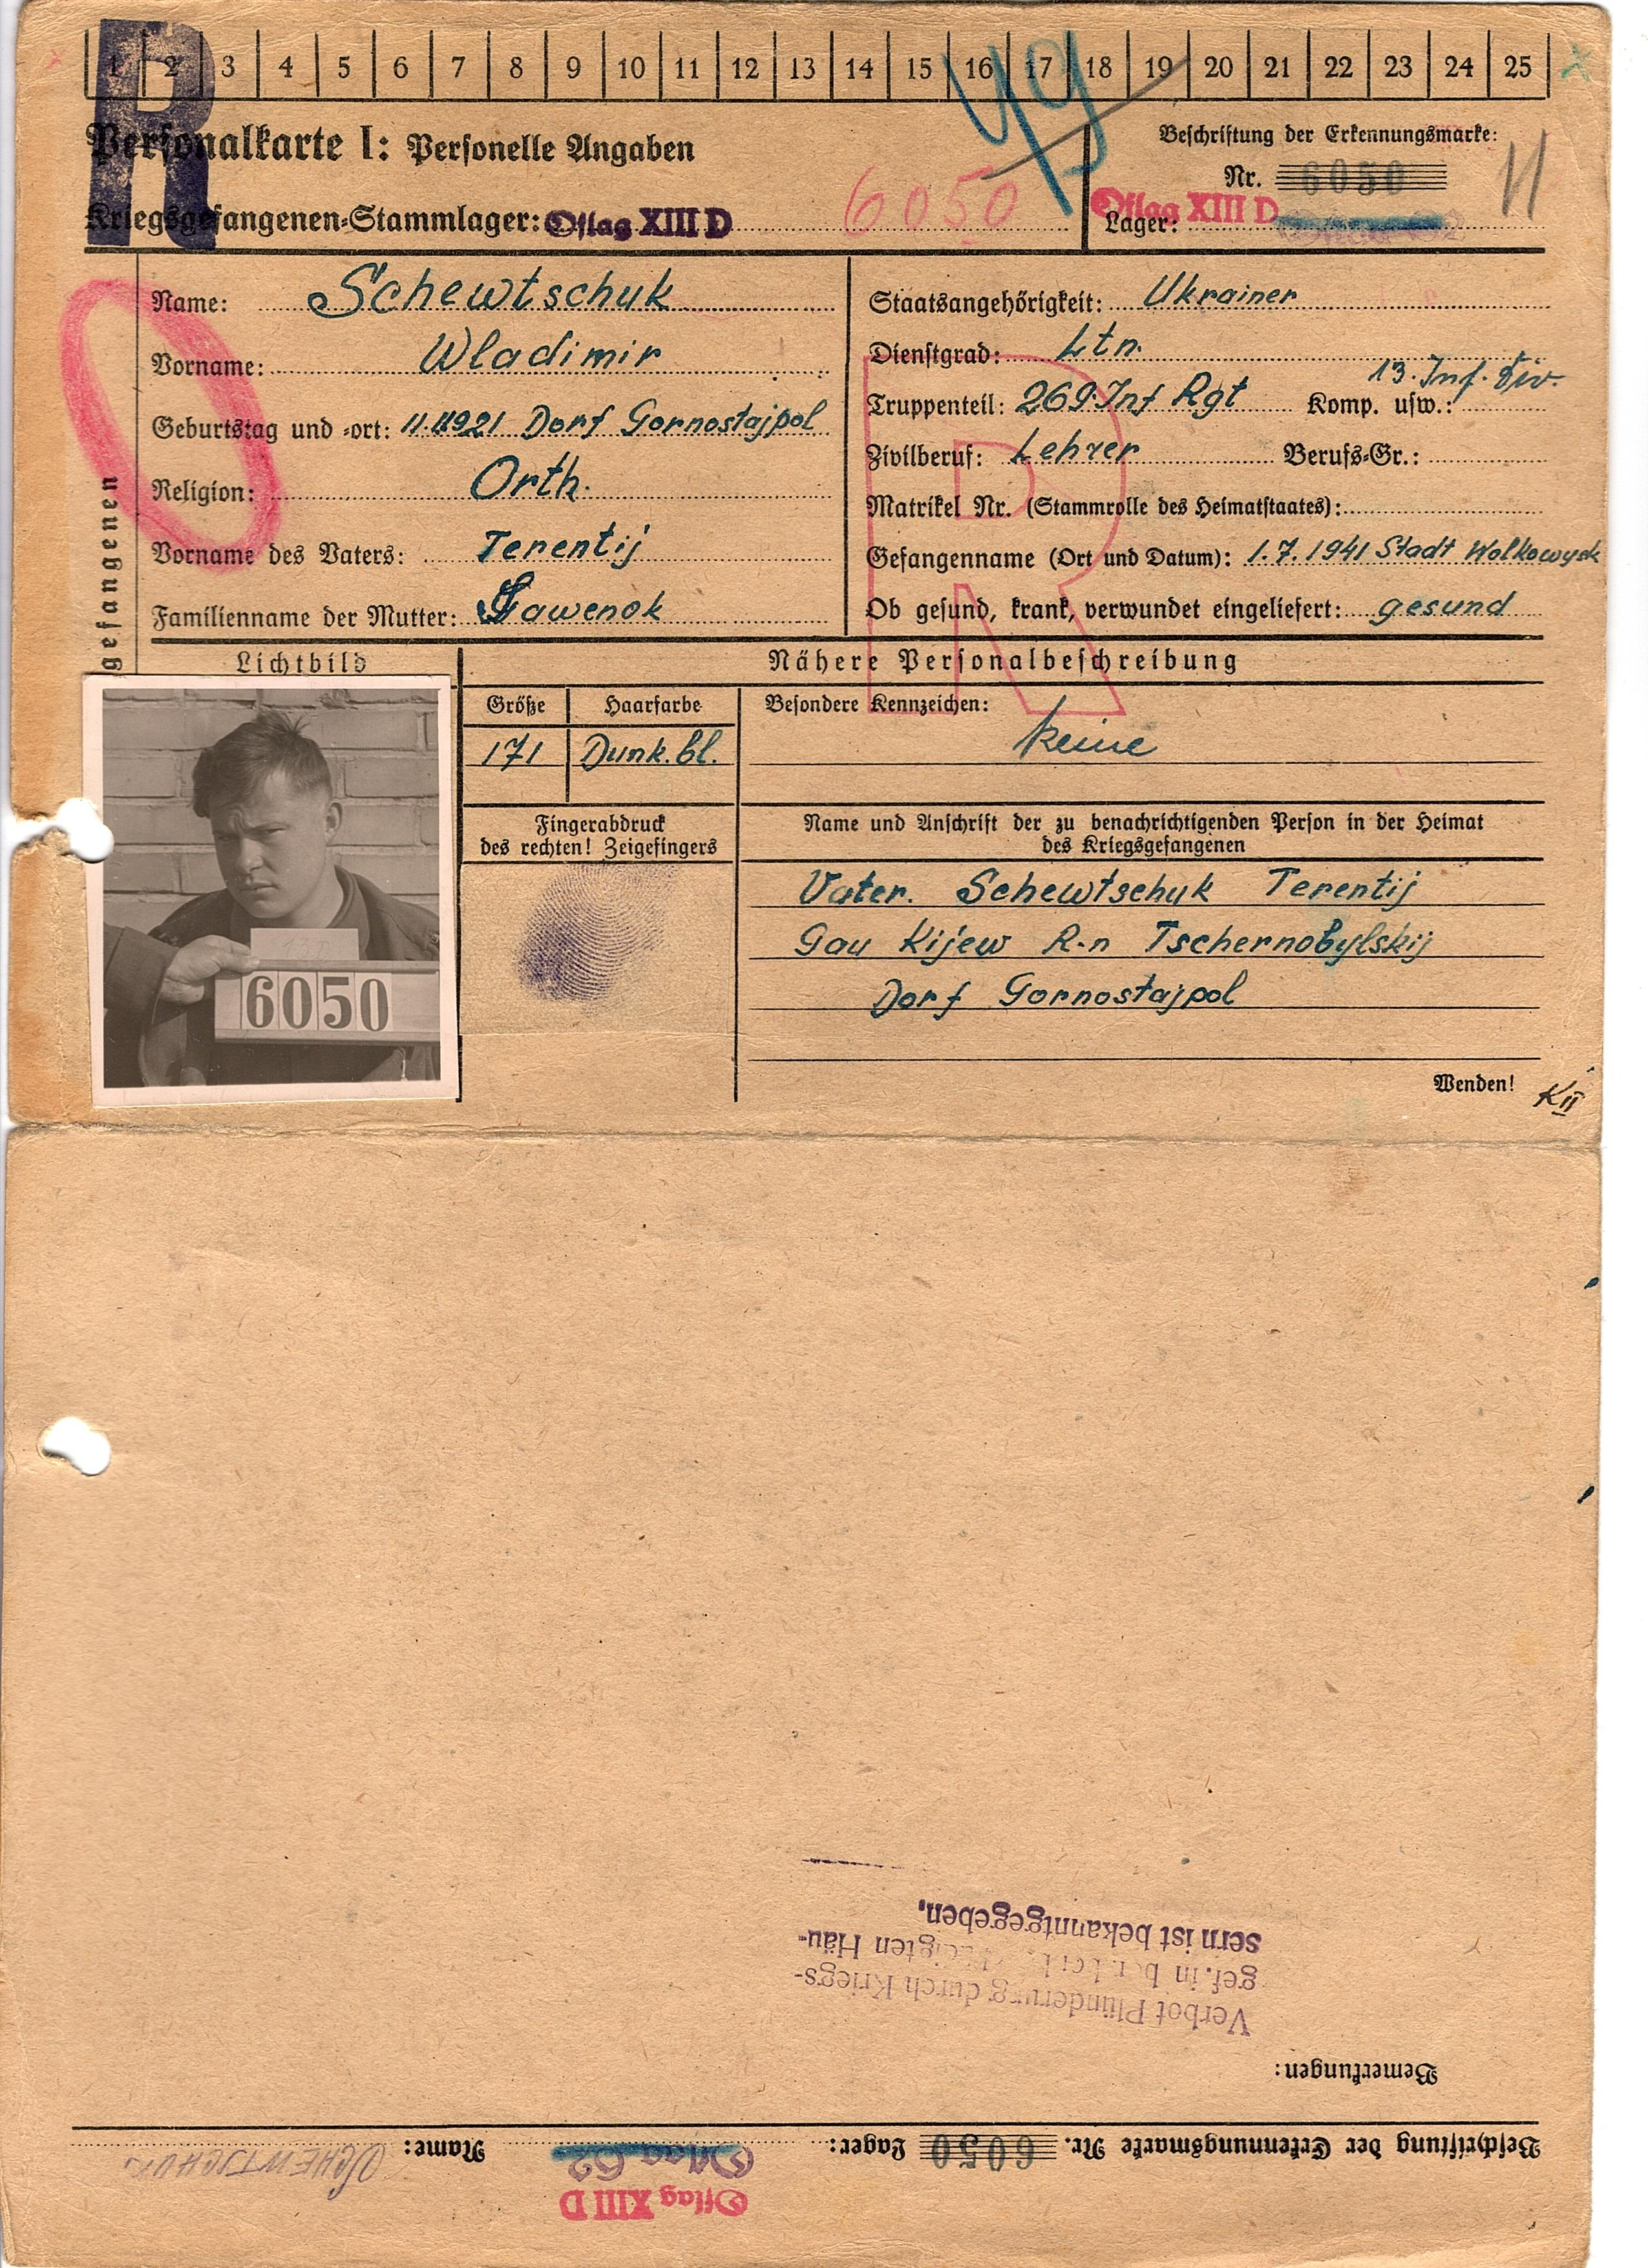 1 2 3 4 5 6 7 8 9 10 11 12 13 14 15 16 17 18 19 20 21 22 23 24 25
R
49
Personalkarte I: Personelle Angaben
Beschriftung der Erkennungsmarke:
Nr. 6050
11
Kriegsgefangenen-Stammlager: Oflag XIII D
6050
Oflag XIII D
Lager:
gefangenen
Name: Schewtschuk
Vorname: Wladimir
Geburtstag und -ort: 11.11.1921 Dorf Gornostajpol
Religion: Orth.
Vorname des Vaters: Terentij
Familienname der Mutter: Gawenok
Staatsangehörigkeit: Ukrainer
Dienstgrad: Ltn.
Truppenteil: 269.Inf Rgt Komp. usw.: 13. Inf. Div.
Zivilberuf: Lehrer Berufs-Gr.:
Matrikel Nr. (Stammrolle des Heimatstaates):
Gefangenname (Ort und Datum): 1.7.1941 Stadt Wolkowysk
Ob gesund, krank, verwundet eingeliefert: gesund
R
Lichtbild
6050
Nähere Personalbeschreibung
Größe Haarfarbe
171 Dunk.bl.
Besondere Kennzeichen:
keine
Fingerabdruck
des rechten! Zeigefingers
Name und Anschrift der zu benachrichtigenden Person in der Heimat
des Kriegsgefangenen
Vater. Schewtschuk Terentij
Gau Kijew R-n Tschernobylskij
Dorf Gornostajpol
Wenden!
KII
Beschriftung der Erkennungsmarke Nr. 6050 Lager: Oflag 62 Name: SCHEWTSCHUK
Oflag XIII D
Bemerkungen:
Verbot Plünderung durch Kriegs-
gef. in Häu-
sern ist bekanntgegeben.